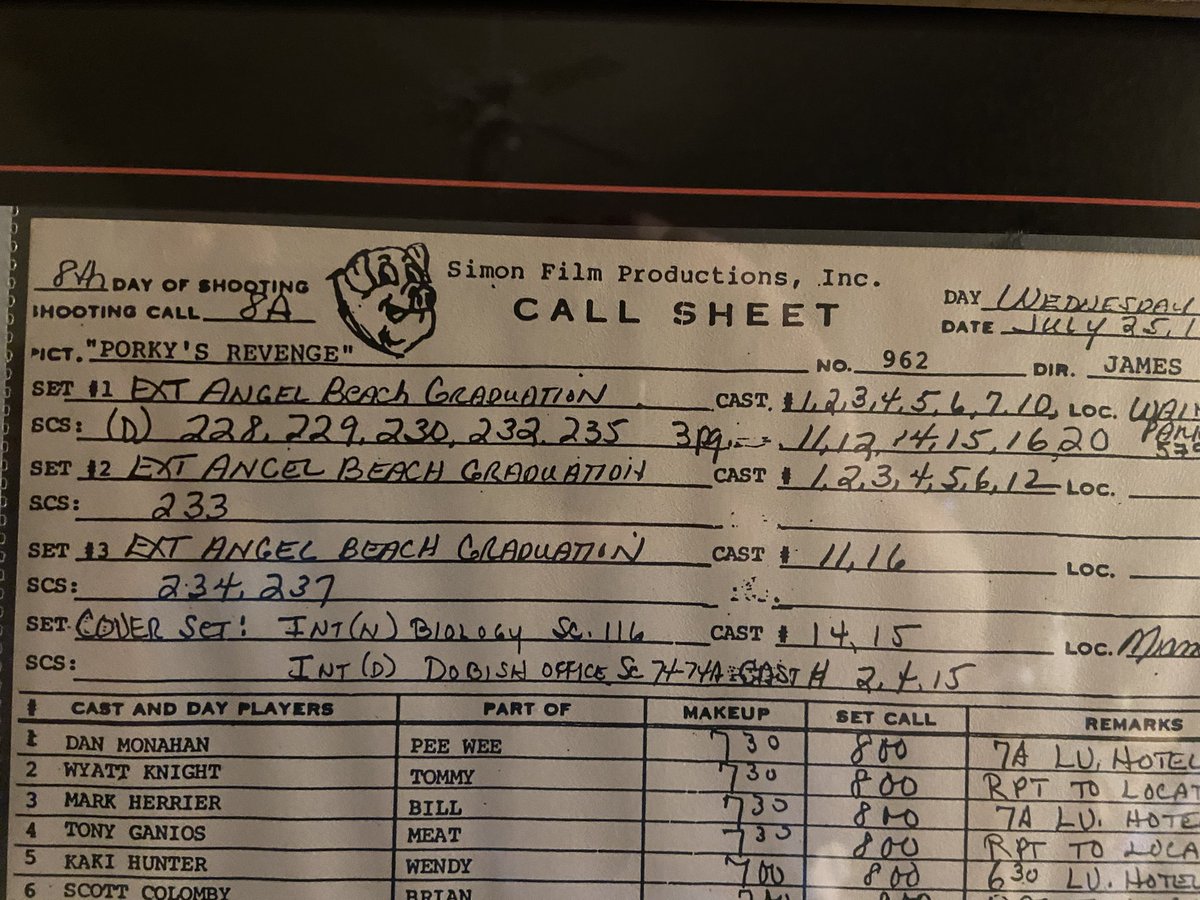 8th DAY OF SHOOTING
Simon Film Productions, Inc.
DAY WEDNESDAY
SHOOTING CALL 8A
CALL SHEET
DATE JULY 25, 1
PICT. "PORKY'S REVENGE" NO. 962 DIR. JAMES
SET #1 EXT ANGEL BEACH GRADUATION CAST # 1, 2, 3, 4, 5, 6, 7, 10, LOC.
SCS: (D) 228, 229, 230, 232, 235 3 pg. 11, 12, 14, 15, 16, 20
SET #2 EXT ANGEL BEACH GRADUATION CAST # 1, 2, 3, 4, 5, 6, 12 LOC.
SCS: 233
SET #3 EXT ANGEL BEACH GRADUATION CAST # 11, 16 LOC.
SCS: 234, 237
SET COVER SET! INT (N) BIOLOGY SC. 116 CAST # 14, 15 LOC.
SCS: INT (D) DOBISH OFFICE SC 74-74A CAST # 2, 4, 15
# CAST AND DAY PLAYERS PART OF MAKEUP SET CALL REMARKS
1 DAN MONAHAN PEE WEE 730 800 7A LV. HOTEL
2 WYATT KNIGHT TOMMY 730 800 RPT TO LOCAT
3 MARK HERRIER BILL 730 800 7A LV. HOTE
4 TONY GANIOS MEAT 730 800 RPT TO LOCA
5 KAKI HUNTER WENDY 700 800 630 LV. HOTEL
6 SCOTT COLOMBY BRIAN